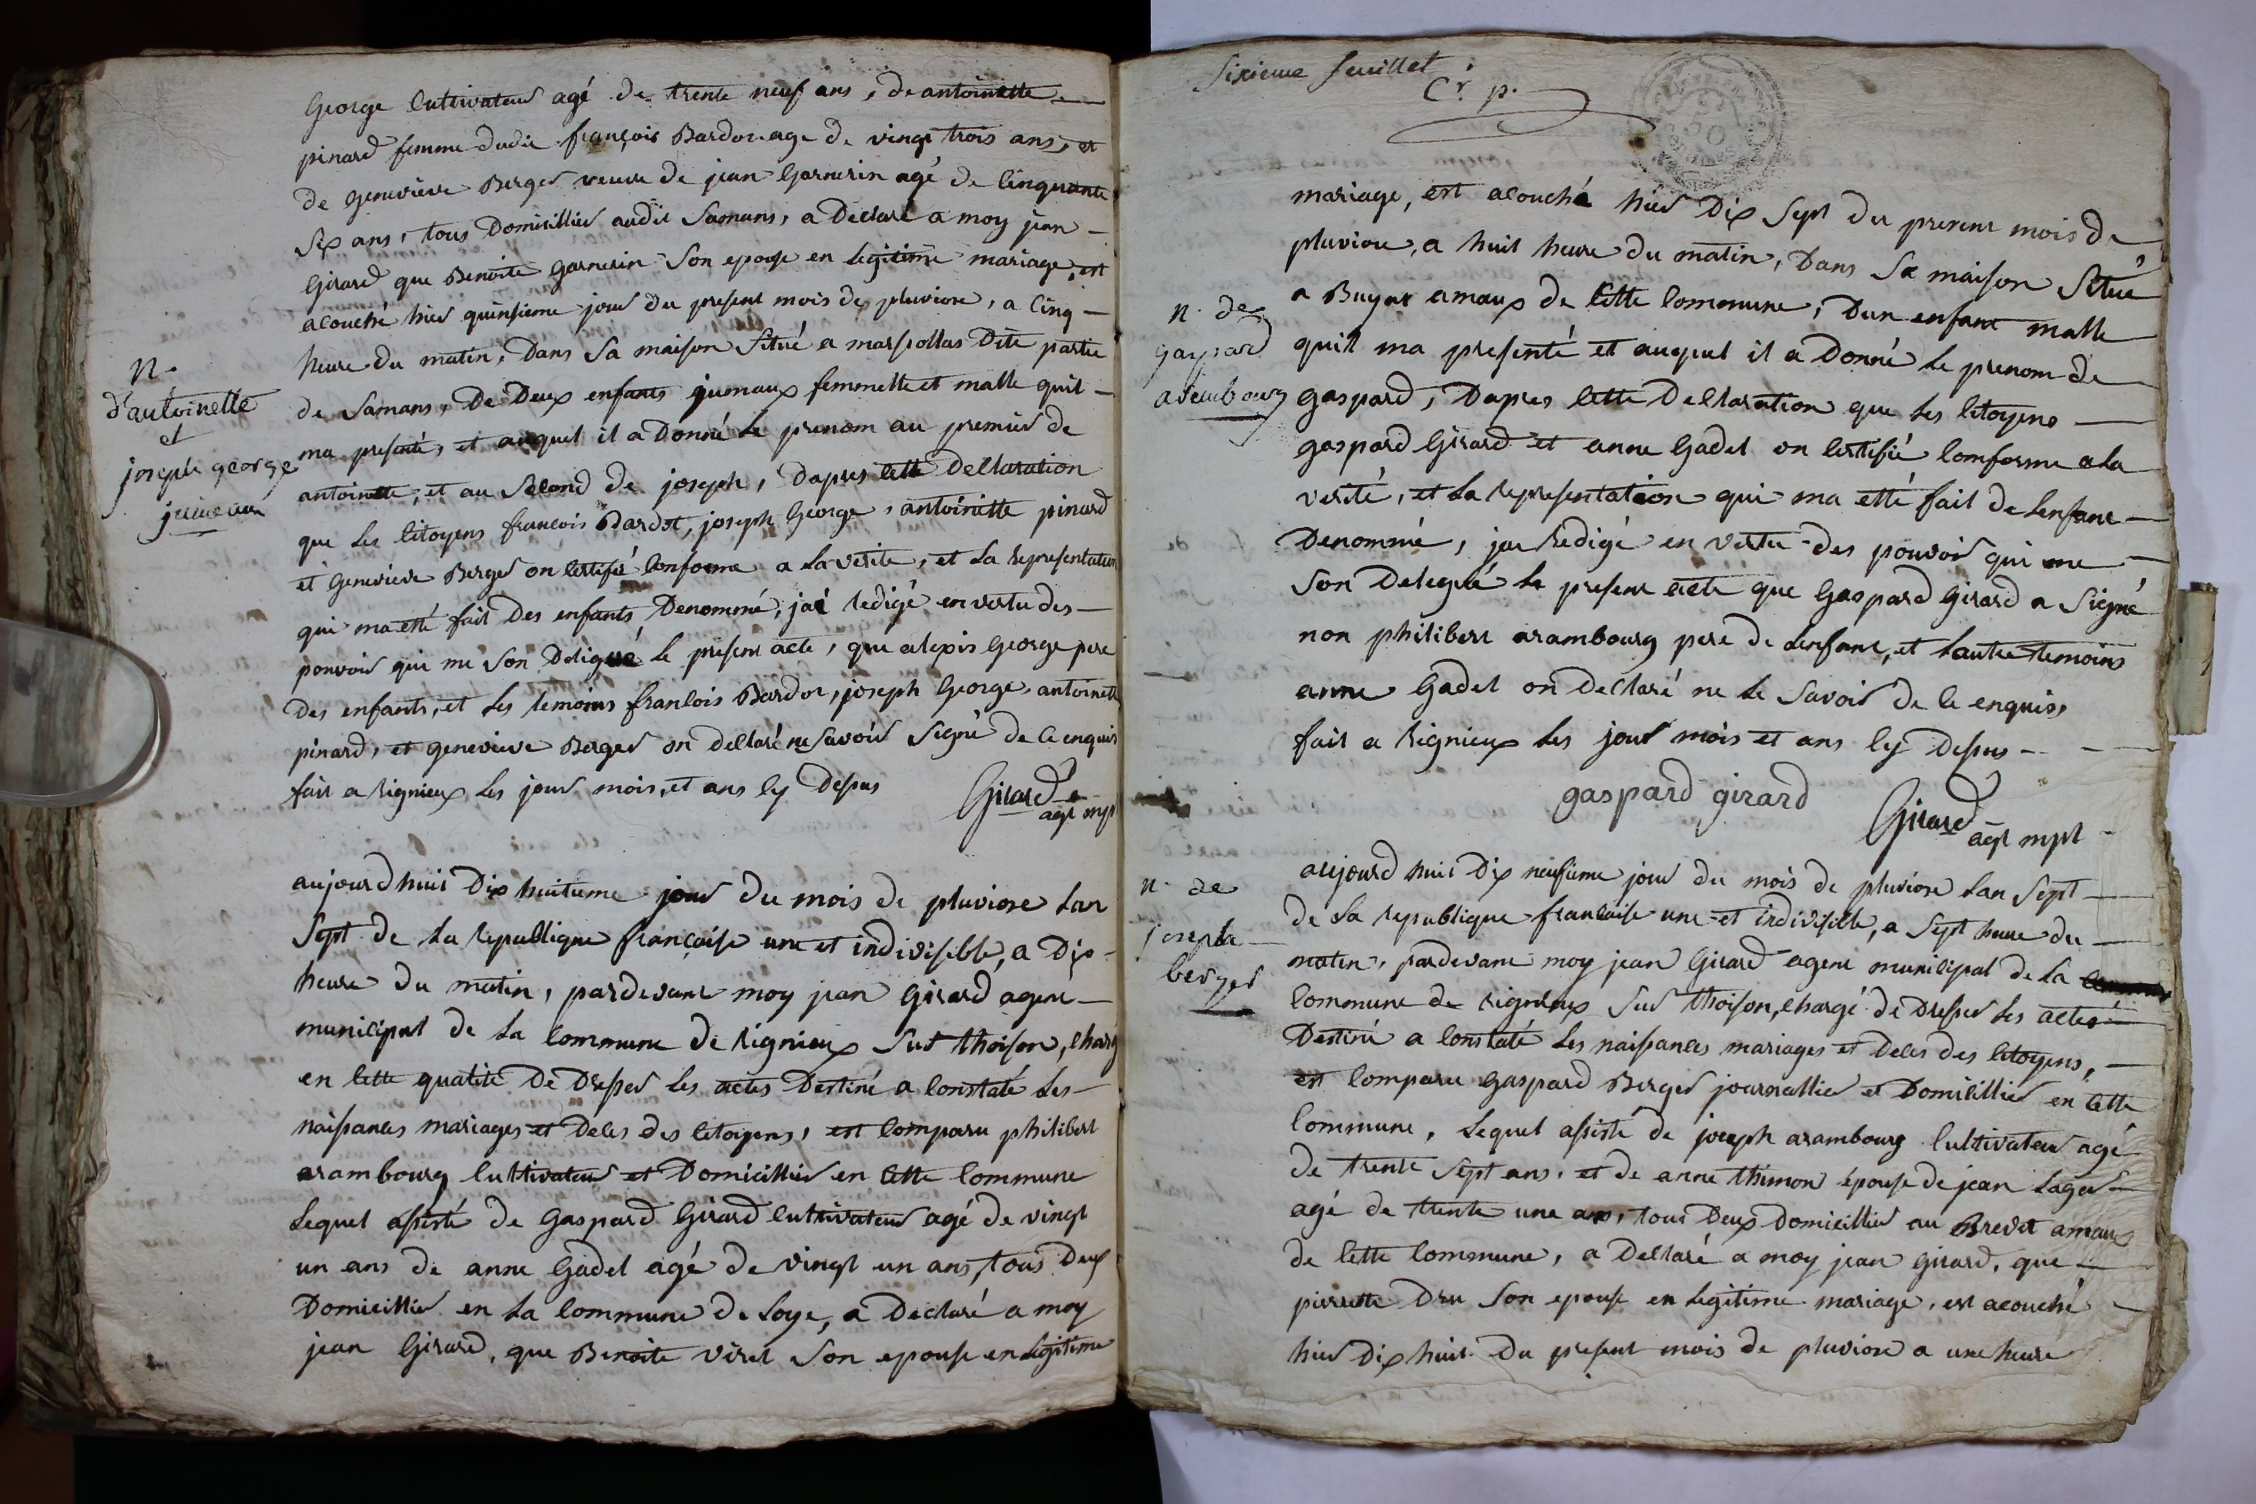 George cultivateur agé de trente neuf ans, de antoinette
pinard femme dudit françois Bardot age de vingt trois ans, et
de genevieve Berger veuve de jean Garnerin agé de cinquante
Six ans, tous Domicillier audit Samans, a Déclaré a moy jean
Girard que Benoite garnerin Son epouse en legitime mariage, est
acouché hier quinsieme jour du present mois de pluviose, a cinq
heure du matin, Dans Sa maison Situé a marsollas Dite partie
de Samans, De Deux enfants jumaux femmelle et malle quil
ma presenté, et auquel il a Donné le prenom au premier de
antoinette, et au Second de joseph, Dapres cette Declaration
que les citoyens francois Bardot, joseph George, antoinette pinard
et genevieve Berger on certifié conforme a la verite, et la representation
qui ma etté fait Des enfants Denommé, jai redigé en vertu des
pouvoir qui me Son Delégué le present acte, que alexis George pere
des enfants, et les temoins francois Bardot, joseph George, antoinette
pinard, et genevieve Berger on declaré ne Savoir Signé de ce enquis
fait a rignieux les jour mois, et ans cy Dessus
Girard
agt mpl
n.
d'antoinette
et
joseph george
jumeaux
aujourdhuit Dix huitieme jour du mois de pluviose lan
Sept de la republique françoise une et indivisible, a Dix
heure du matin, pardevant moy jean Girard agent
municipal de la commune de rignieux Sur thoison, charg
en cette qualité De Dresser les actes Destiné a constaté les
naissances mariages et Deces des citoyens, est comparu philibert
arambourg cultivateur et Domicillier en cette commune
lequel assisté de Gaspard Girard cultivateur agé de vingt
un ans de anne Gadel agé de vingt un ans, tous Deux
Domicillier en la commune de Loye, a Declaré a moy
jean Girard, que Benoite viret Son epouse en legitime
Sixieme feuillet
Cr. p.
mariage, est acouché hier Dix Sept du present mois de
pluviose, a huit heure du matin, Dans Sa maison Situé
a Buyat amaux de cette commune, Dun enfant malle
quil ma presenté et auquel il a Donné le prenom de
gaspard, Dapres cette Declaration que les citoyens
gaspard Girard et anne Gadel on certifié conforme a la
verité, et la representation qui ma etté fait de lenfant
Denommé, jai redigé en vertu des pouvoir qui me
Son Delegué le present acte que Gaspard Girard a Signé
non philibert arambourg pere de lenfant, et lautre temoins
anne Gadel on declaré ne le Savoir de ce enquis,
fait a rignieux les jour mois et ans cy Dessus
gaspard girard
Girard
agt mpl
n. de
gaspard
arembourg
aujourdhuit Dix neufieme jour du mois de pluviose lan Sept
de la republique francaise une et indivisible, a Sept heure du
matin, pardevant moy jean Girard agent municipal de la
commune de rignieux Sur thoison, chargé de Dresser les actes
Destiné a constaté les naissances mariages et Deces des citoyens,
est comparu gaspard Berger journallier et Domicillier en cette
commune, lequel assisté de joseph arambourg cultivateur agé
de trente Sept ans, et de anne thimon épouse de jean lager
agé de trente une ans, tous Deux Domicillier au Brevet amaux
de cette commune, a declaré a moy jean Girard, que
pierrette Dru Son epouse en legitime mariage, est acouché
hier Dix huit du present mois de pluviose a une heure
n. de
joseph
berger